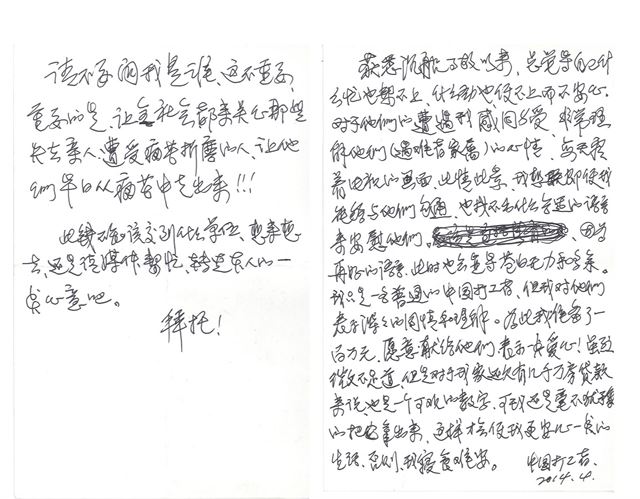 请不要问我是谁,这不重要,
重要的是,让全社会都来关心那些
失去亲人、遭受痛苦折磨的人,让他
们早日从痛苦中走出来!!!
此钱不知该交到什么单位,想来想
去,还是请媒体帮忙,转达本人的一
点心意吧。
拜托!
获悉沉船事故以来,总觉得自己什
么忙也帮不上,什么劲也使不上而不安心。
对于他们的遭遇我感同身受,非常理
解他们(遇难者家属)的心情,每天看
着电视的画面,此情此景,我 即使我
能够与他们沟通,也找不出什么合适的语言
来安慰他们。 因为
再好的语言,此时也会显得苍白无力和多余。
我只是一名普通的中国打工者,但我对他们
表示深深的同情和理解。为此我准备了一
百万元,愿意献给他们,表示一点爱心!虽然
微不足道,但是对于我家还欠有几十万房贷款
来说,也是一个可观的数字,可我还是毫不犹豫
的把它拿出来,这样才会使我更安心一点的
生活,否则,我寝食难安。 中国打工者
2014.4.